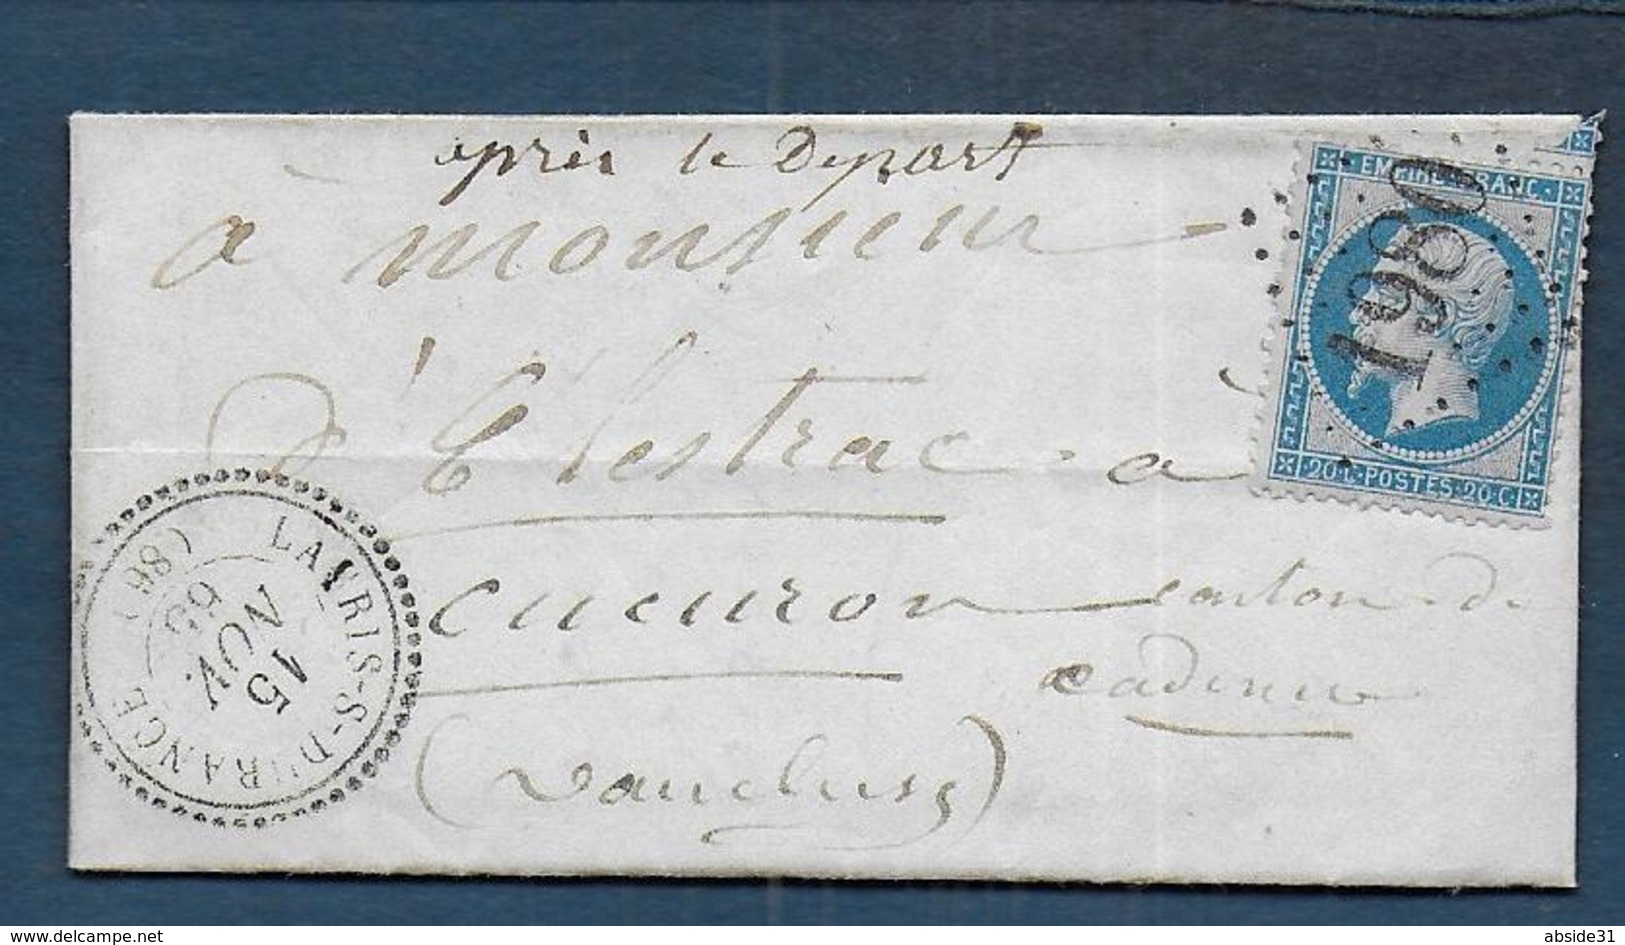 après le Depart
à monsieur
EMPIRE FRANC.
1980
d'Elestrac à
20 C. POSTES 20 C.
cucuron canton de
cadenet
(Vaucluse)
LAURIS-S-DURANCE (98)
15
NOV.
65
www.delcampe.net
abside31